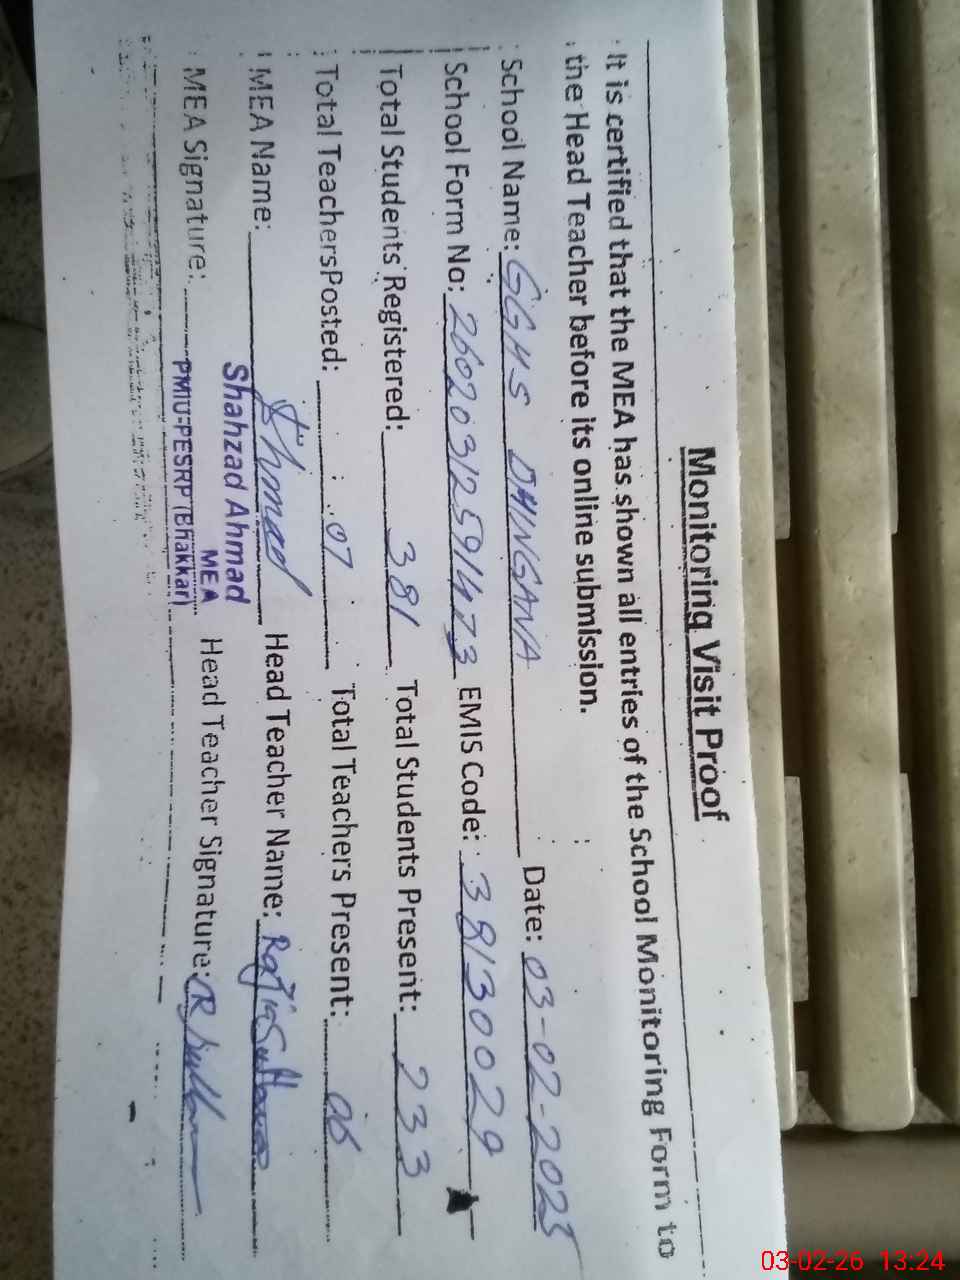 Monitoring Visit Proof
It is certified that the MEA has shown all entries of the School Monitoring Form to
the Head Teacher before its online submission.
School Name: GGHS DHINGANA Date: 03-02-2025
School Form No: 26020312591473 EMIS Code: 38130029
Total Students Registered: 381 Total Students Present: 233
Total TeachersPosted: 07 Total Teachers Present: 06
MEA Name: Ahmad Head Teacher Name: Rafia Sultana
Shahzad Ahmad
MEA
MEA Signature: PMIU-PESRP (Bhakkar) Head Teacher Signature:
03-02-26 13:24